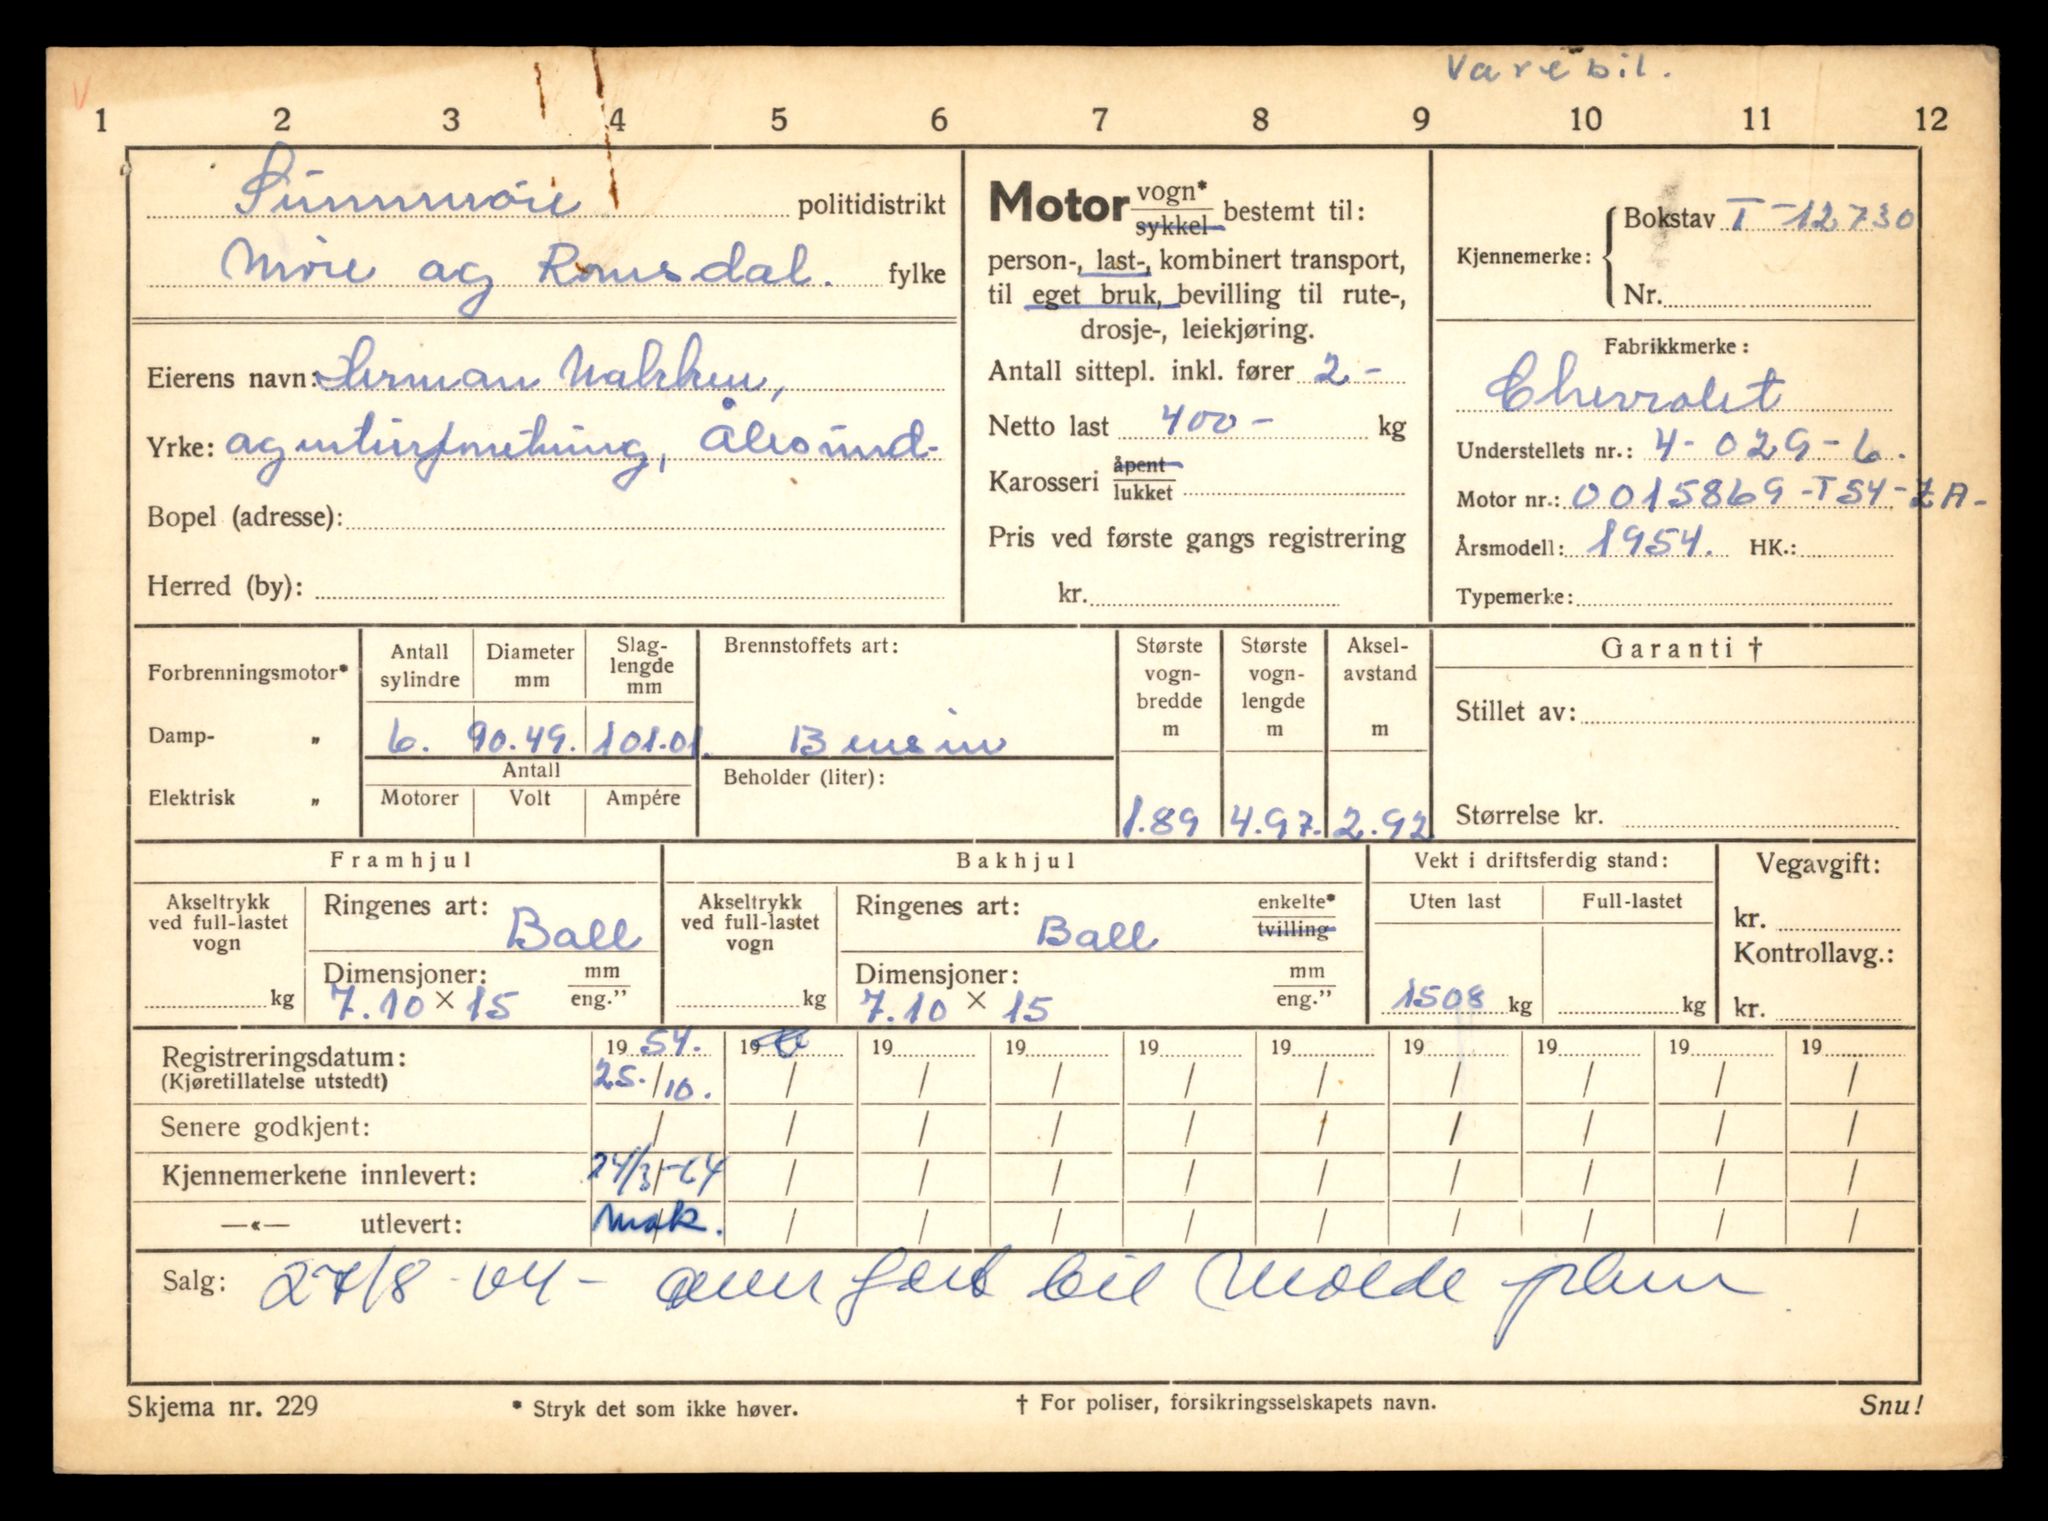 Varebil.
V
1 2 3 4 5 6 7 8 9 10 11 12
Sunnmøre politidistrikt
Møre og Romsdal. fylke
Eierens navn: Herman Nakken,
Yrke: agenturforretning, Ålesund-
Bopel (adresse):
Herred (by):
Motor vogn* / sykkel bestemt til:
person-, last-, kombinert transport,
til eget bruk, bevilling til rute-,
drosje-, leiekjøring.
Antall sittepl. inkl. fører 2-
Netto last 400- kg
Karosseri åpent / lukket
Pris ved første gangs registrering
kr.
Kjennemerke: Bokstav T-12730
Nr.
Fabrikkmerke:
Chevrolet
Understellets nr.: 4-029-6.
Motor nr.: 0015869-T54-ZA-
Årsmodell: 1954. HK.:
Typemerke:
Forbrenningsmotor*
Damp- „
Elektrisk „
Antall sylindre Diameter mm Slaglengde mm
6. 90.49. 101.01.
Antall
Motorer Volt Ampére
Brennstoffets art:
Bensin
Beholder (liter):
Største vogn-bredde m Største vogn-lengde m Aksel-avstand m
1.89 4.97. 2.92
Garanti †
Stillet av:
Størrelse kr.
Framhjul
Akseltrykk ved full-lastet vogn
kg
Ringenes art: Ball
Dimensjoner: mm / eng.”
7.10 × 15
Bakhjul
Akseltrykk ved full-lastet vogn
kg
Ringenes art: Ball enkelte* / tvilling
Dimensjoner: mm / eng.”
7.10 × 15
Vekt i driftsferdig stand:
Uten last Full-lastet
1508 kg kg
Vegavgift:
kr.
Kontrollavg.:
kr.
Registreringsdatum: 19 54. 19 19 19 19 19 19 19 19 19
(Kjøretillatelse utstedt) 25./10. / / / / / / / / /
Senere godkjent: / / / / / / / / / /
Kjennemerkene innlevert: 24/3-64 / / / / / / / / /
—«— utlevert: mok. / / / / / / / / /
Salg: 27/8-64- overført til Molde
Skjema nr. 229 * Stryk det som ikke høver. † For poliser, forsikringsselskapets navn. Snu!